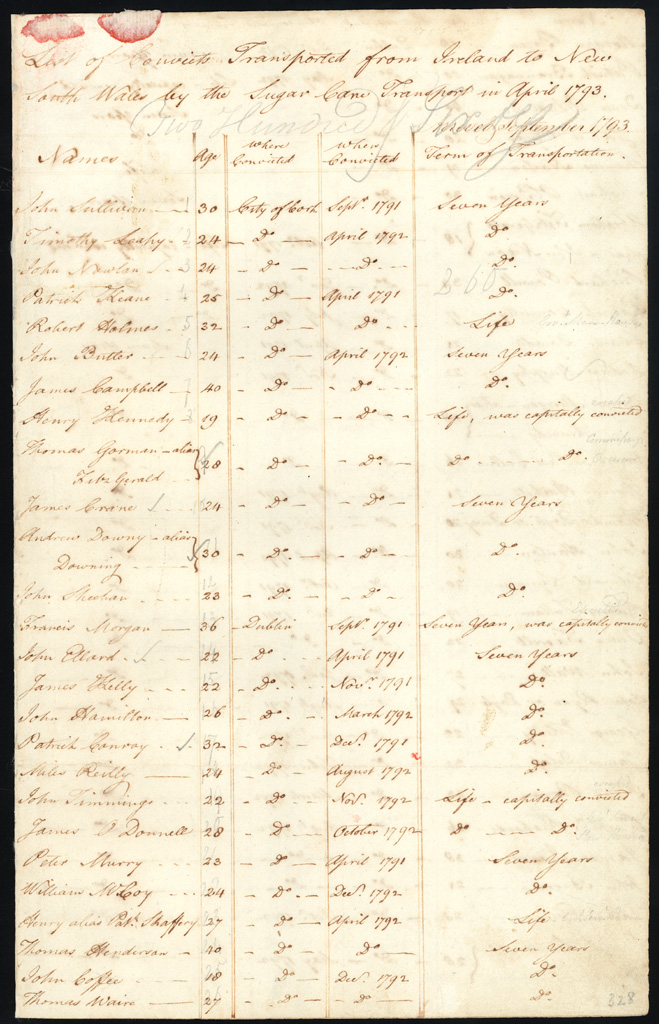 List of Convicts Transported from Ireland to New
South Wales by the Sugar Cane Transport in April 1793.
Two Hundred Sixty
Arrived September 1793.
Names Age where Convicted when Convicted Term of Transportation.
John Sullivan 1 30 City of Cork Septr. 1791 Seven Years
Timothy Leahy 2 24 Do April 1792 Do.
John Nowlan 3 24 Do Do. Do.
260
Patrick Keane 4 25 Do April 1791 Do.
Robert Holmes 5 32 Do Do. Life
John Butler 6 24 Do April 1792 Seven Years
James Campbell 7 40 Do Do. Do.
Henry Kennedy 8 19 Do Do Life, was capitally convicted
Thomas Gorman alias
Fitz Gerald 28 Do Do. Do. Do.
James Crane 24 Do Do Seven Years
Andrew Downy alias
Downing 30 Do. Do Do.
John Sheehan 23 Do. Do Do.
Francis Morgan 36 Dublin Septr. 1791 Seven Years, was capitally convict
John Ellard 22 Do April 1791 Seven Years
James Kelly 22 Do. Novr. 1791 Do.
John Hamilton 26 Do. March 1792 Do.
Patrick Conroy 32 Do. Decr. 1791 Do.
Miles Reilly 24 Do August 1792 Do.
John Timmings 22 Do Novr. 1792 Life - capitally convicted
James O Donnell 28 Do October 1792 Do Do.
Peter Murry 23 Do April 1791 Seven Years
William McCoy 24 Do. Decr. 1792 Do.
Henry alias Patk. Shaffery 27 Do April 1792 Life
Thomas Henderson 40 Do Do Seven Years
John Coffee 18 Do Decr. 1792 Do.
Thomas Waire 27 Do Do Do.
328